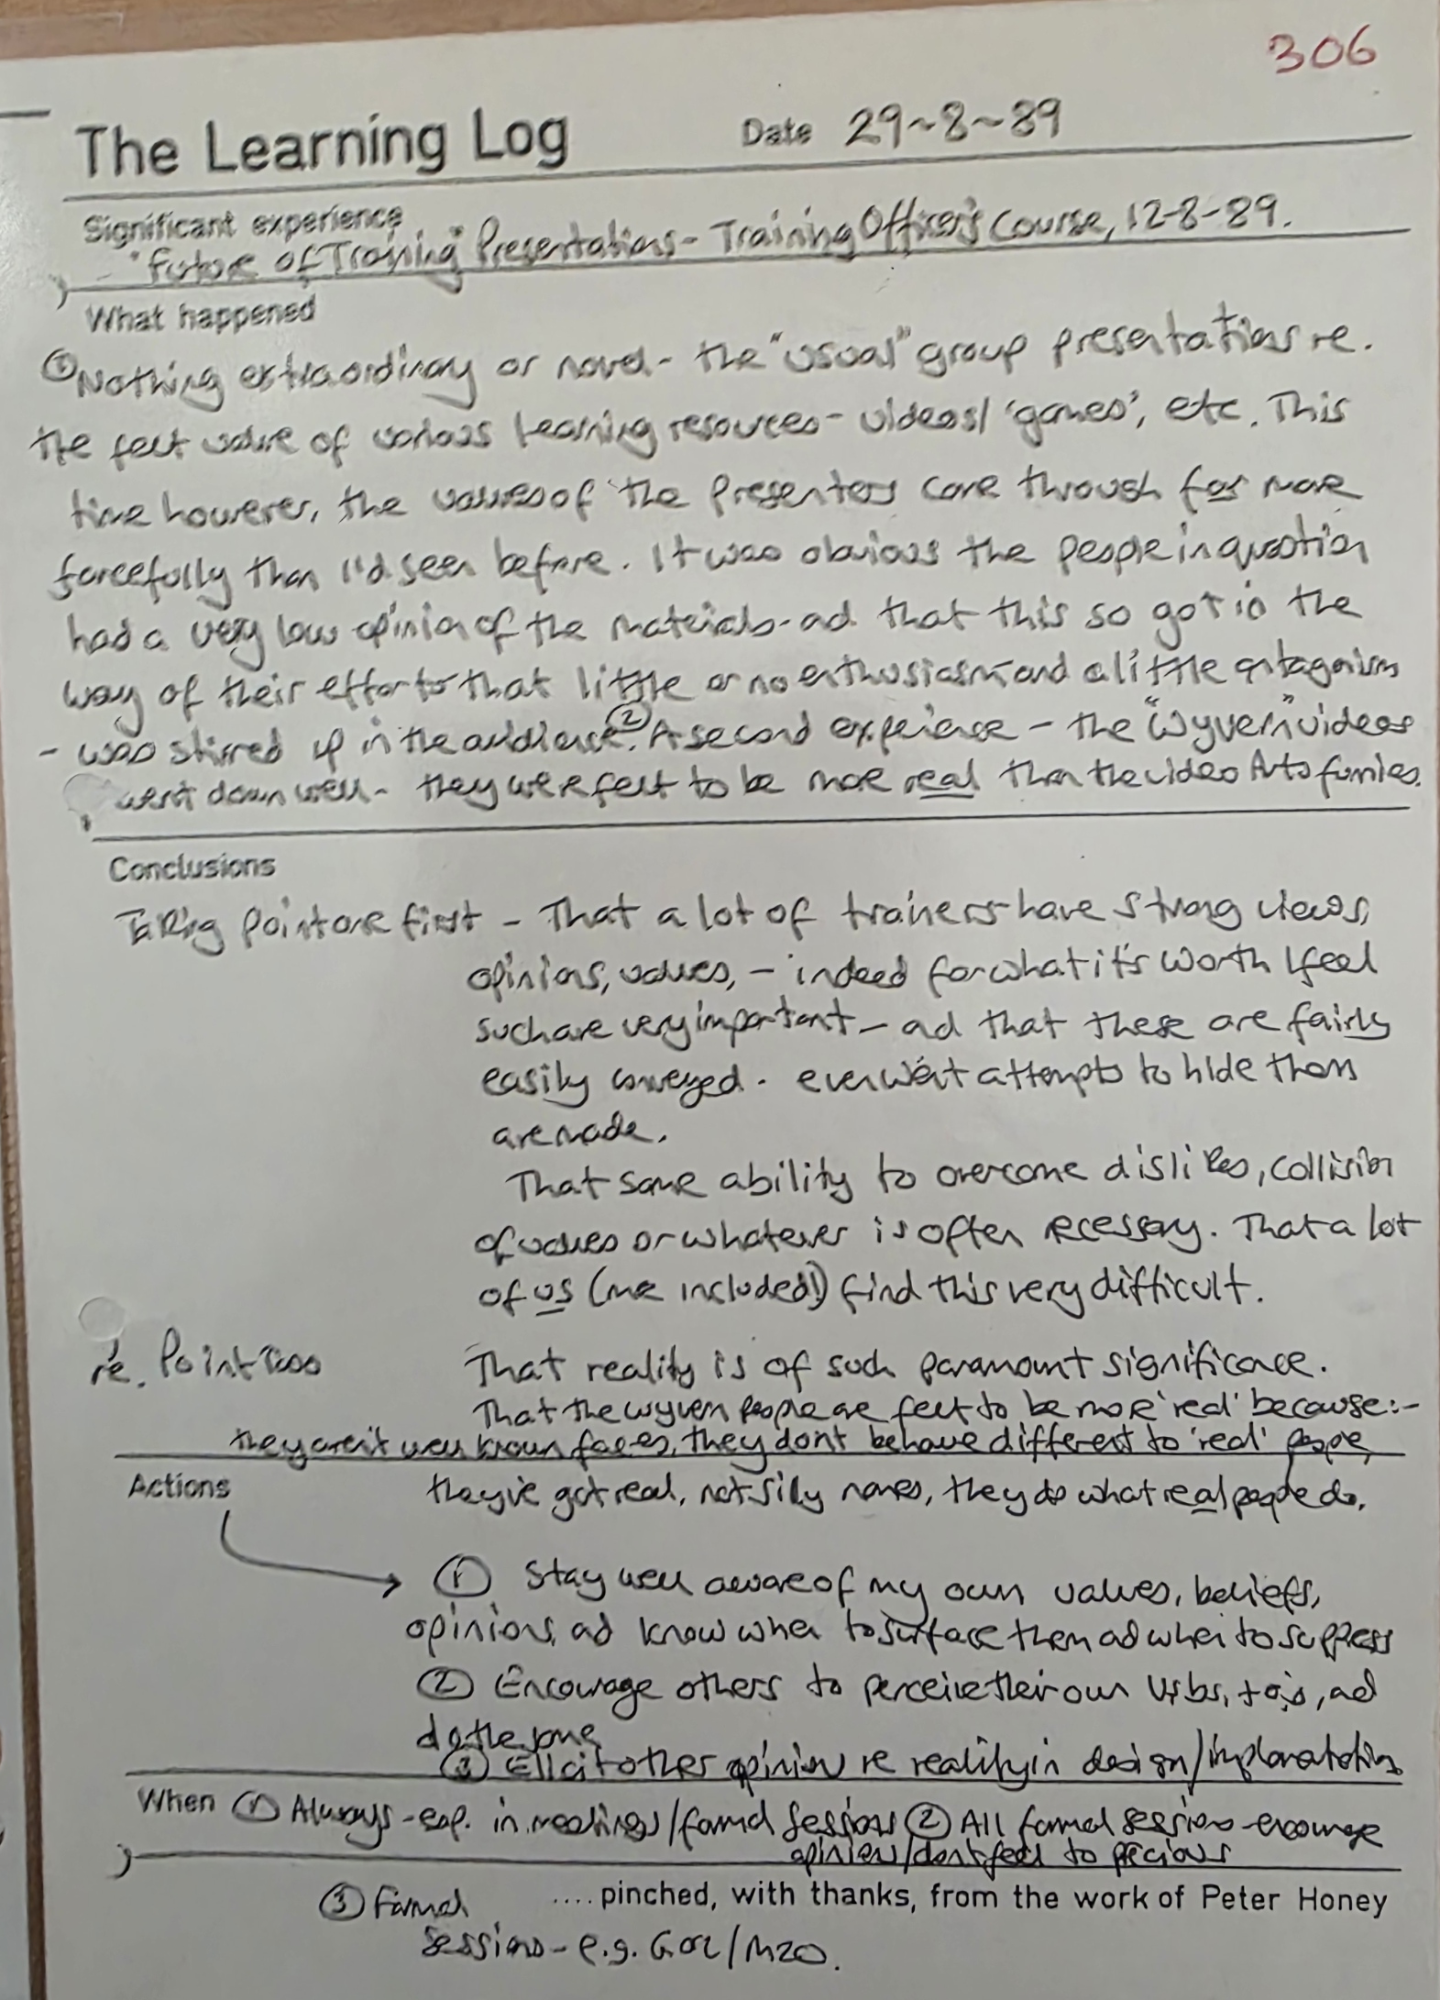 306
The Learning Log Date 29~8~89
Significant experience
- "Future of Training" Presentations - Training Officer's Course, 12-8-89.
What happened
① Nothing extraordinary or novel - the "usual" group presentations re.
the felt value of various learning resources - videos/ 'games', etc. This
time however, the values of the presenters came through far more
forcefully than I'd seen before. It was obvious the people in question
had a very low opinion of the materials - and that this so got in the
way of their efforts that little or no enthusiasm - and a little antagonism
- was stirred up in the audience. ② A second experience - the "Wyvern" videos
went down well - they were felt to be more real than the Video Arts funnies.
Conclusions
Taking point one first - That a lot of trainers have strong views,
opinions, values, - indeed for what it's worth I feel
such are very important - and that these are fairly
easily conveyed - even when attempts to hide them
are made.
That some ability to overcome dislikes, collision
of values or whatever is often necessary. That a lot
of us (me included!) find this very difficult.
re. Point Two That reality is of such paramount significance.
That the wyvern people are felt to be more 'real' because:-
they aren't well known faces, they don't behave different to 'real' people,
Actions they've got real, not silly names, they do what real people do.
① Stay well aware of my own values, beliefs,
opinions, and know when to surface them and when to suppress
② Encourage others to perceive their own and
do the same
③ Ellicit other opinion re reality in design/implementation
When ① Always - esp. in meetings/formal sessions ② All formal sessions - encourage
opinion/don't feel to precious
③ Formal .... pinched, with thanks, from the work of Peter Honey
sessions - e.g. /M20.